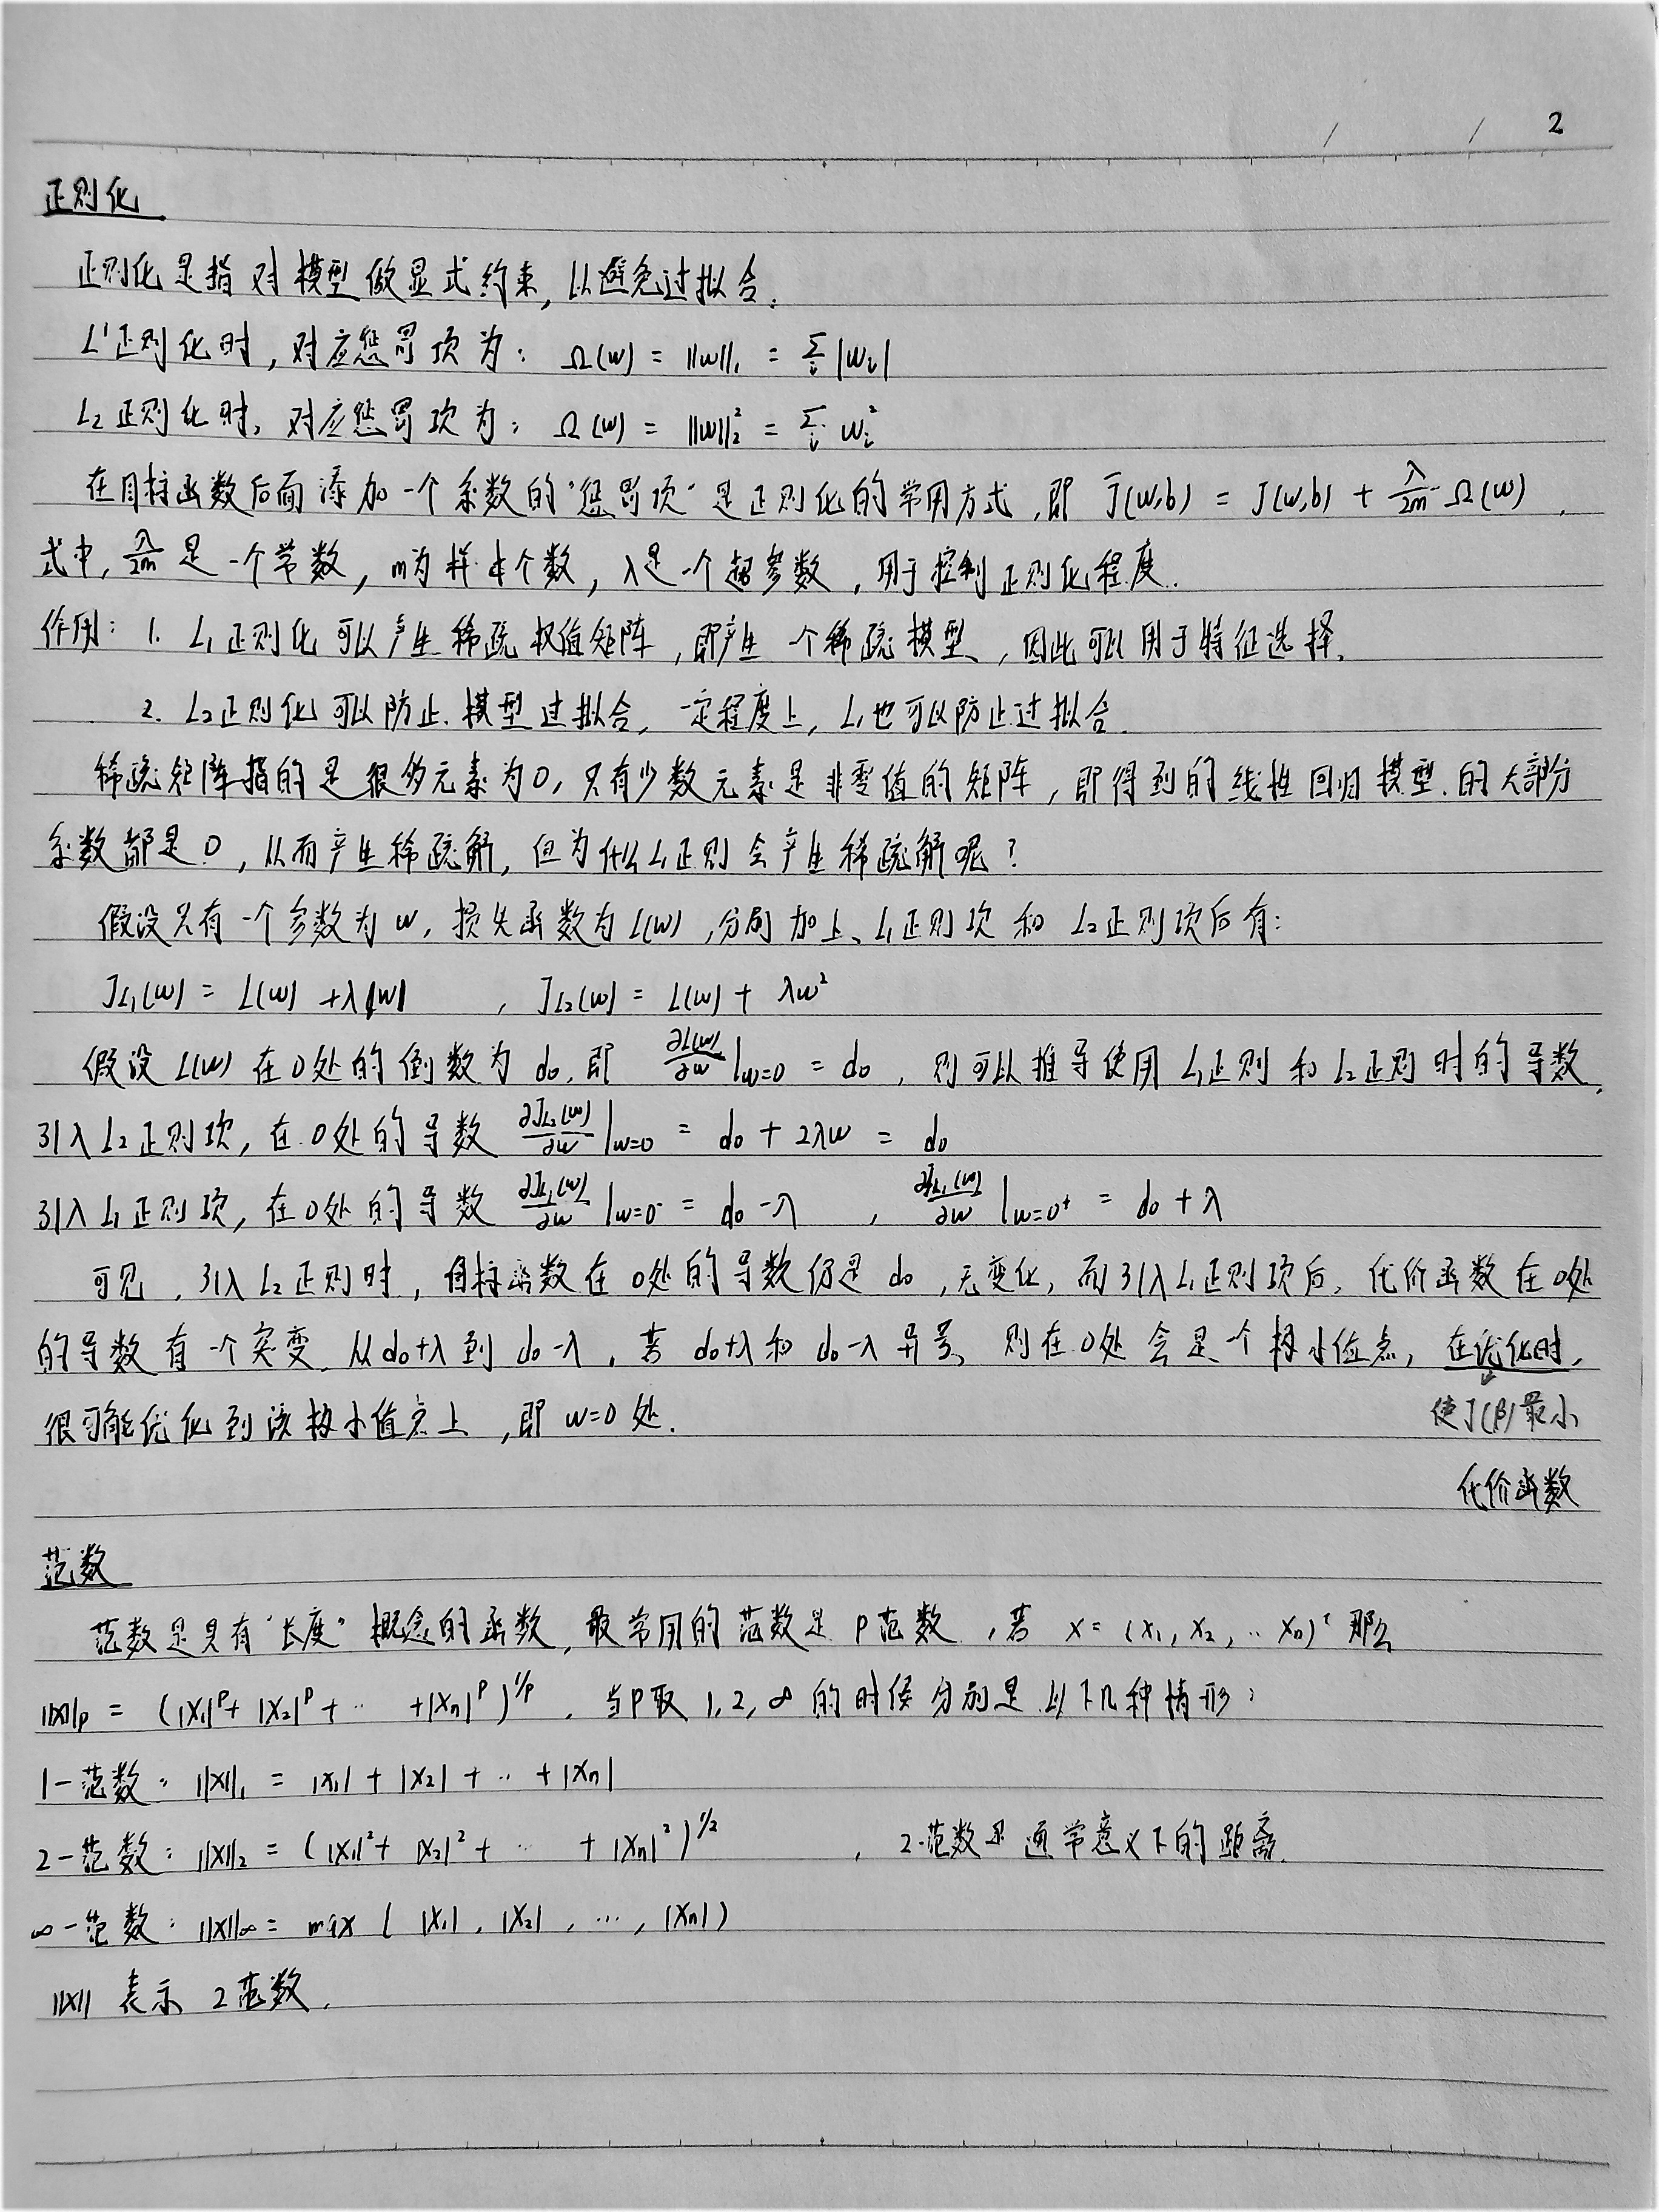 2
正则化
正则化是指对模型做显式约束,以避免过拟合.
L1正则化时,对应惩罚项为: Ω(w) = ||w||₁ = Σᵢ |wᵢ|
L₂正则化时,对应惩罚项为: Ω(w) = ||w||₂² = Σᵢ wᵢ²
在目标函数后面添加一个系数的"惩罚项"是正则化的常用方式,即 J̃(w,b) = J(w,b) + λ/2m Ω(w),
式中, λ/2m 是一个常数, m为样本个数, λ是一个超参数,用于控制正则化程度.
作用: 1. L₁正则化可以产生稀疏权值矩阵,即产生一个稀疏模型,因此可以用于特征选择.
2. L₂正则化可以防止模型过拟合,一定程度上, L₁也可以防止过拟合.
稀疏矩阵指的是很多元素为0,只有少数元素是非零值的矩阵,即得到的线性回归模型的大部分
系数都是0,从而产生稀疏解,但为什么L₁正则会产生稀疏解呢?
假设只有一个参数为w,损失函数为L(w),分别加上L₁正则项和L₂正则项后有:
J_L₁(w) = L(w) + λ|w| , J_L₂(w) = L(w) + λw²
假设L(w)在0处的倒数为d₀,即 ∂L(w)/∂w |w=0 = d₀,则可以推导使用L₁正则和L₂正则时的导数.
引入L₂正则项,在0处的导数 ∂J_L₂(w)/∂w |w=0 = d₀ + 2λw = d₀
引入L₁正则项,在0处的导数 ∂J_L₁(w)/∂w |w=0⁻ = d₀ - λ , ∂J_L₁(w)/∂w |w=0⁺ = d₀ + λ
可见,引入L₂正则时,目标函数在0处的导数仍是d₀,无变化,而引入L₁正则项后,代价函数在0处
的导数有一个突变.从d₀+λ到d₀-λ,若d₀+λ和d₀-λ异号,则在0处会是一个极小值点,在优化时,
很可能优化到该极小值点上,即w=0处.
使J(β)最小
代价函数
范数
范数是具有"长度"概念的函数,最常用的范数是P范数,若 x = (x₁, x₂, ‥ xₙ)ᵀ 那么
||x||ₚ = (|x₁|ᵖ + |x₂|ᵖ + ‥ + |xₙ|ᵖ)^1/p . 当P取1,2,∞的时候分别是以下几种情形:
1-范数: ||x||₁ = |x₁| + |x₂| + ‥ + |xₙ|
2-范数: ||x||₂ = (|x₁|² + |x₂|² + ‥ + |xₙ|²)^1/2 , 2-范数是通常意义下的距离.
∞-范数: ||x||∞ = max ( |x₁|, |x₂|, …, |xₙ| )
||x|| 表示2范数.